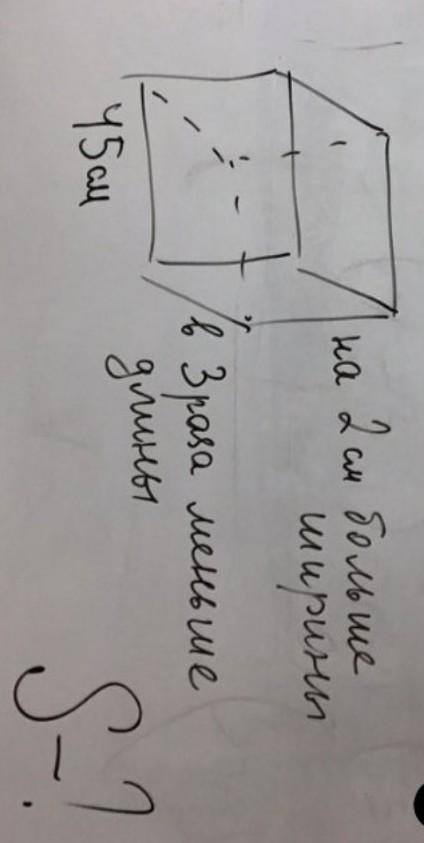 на 2 см больше
ширины
в 3 раза меньше
длины
45см
S-?